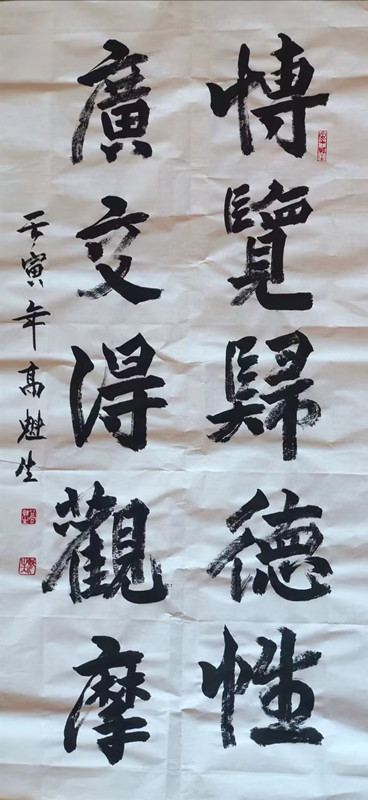 博覽歸德性
廣交得觀摩
壬寅年高魁生